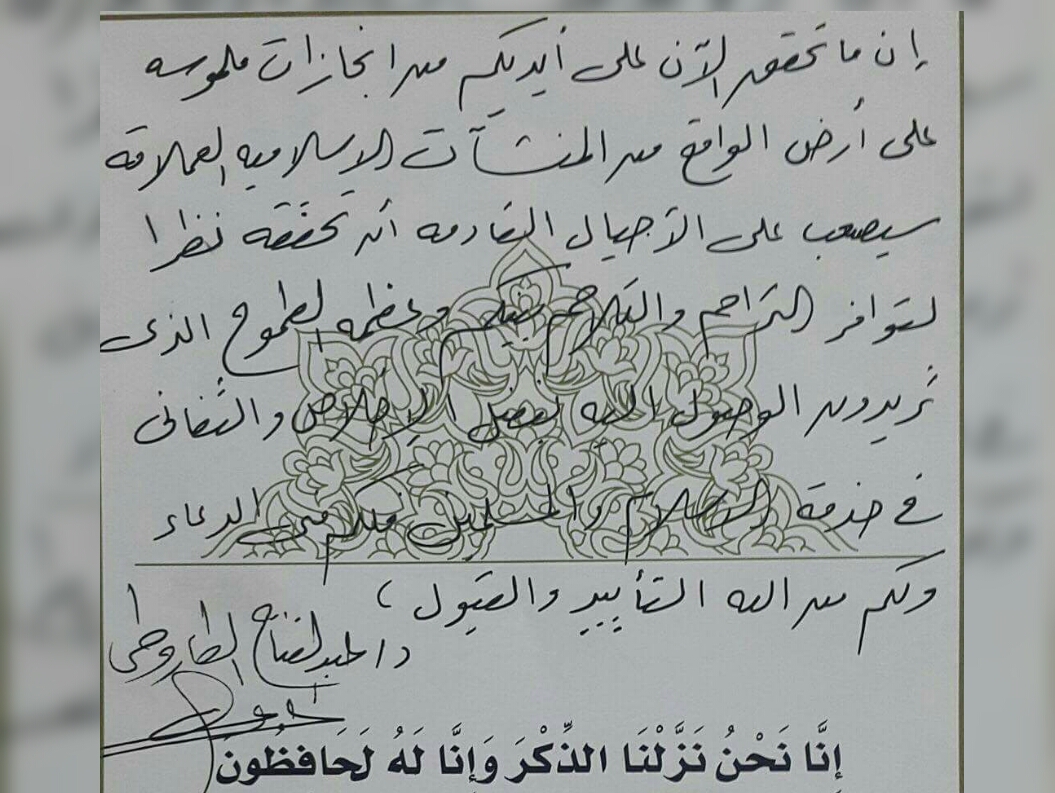 إن ما تحقق الآن على أيديكم من انجازات ملموسه
على أرض الواقع من المنشآت الإسلامية العملاقة
سيصعب على الأجيال القادمه أن تحققه نظرا
لتوافر التراحم والتلاحم بينكم وعظمة الطموح الذى
تريدون الوصول اليه بفضل الإخلاص والتفانى
فى خدمة الاسلام والمسلمين فلكم منى الدعاء
ولكم من الله التأييد والقبول ،
د/ عبدالفتاح الطاروطى
إِنَّا نَحْنُ نَزَّلْنَا الذِّكْرَ وَإِنَّا لَهُ لَحَافِظُونَ